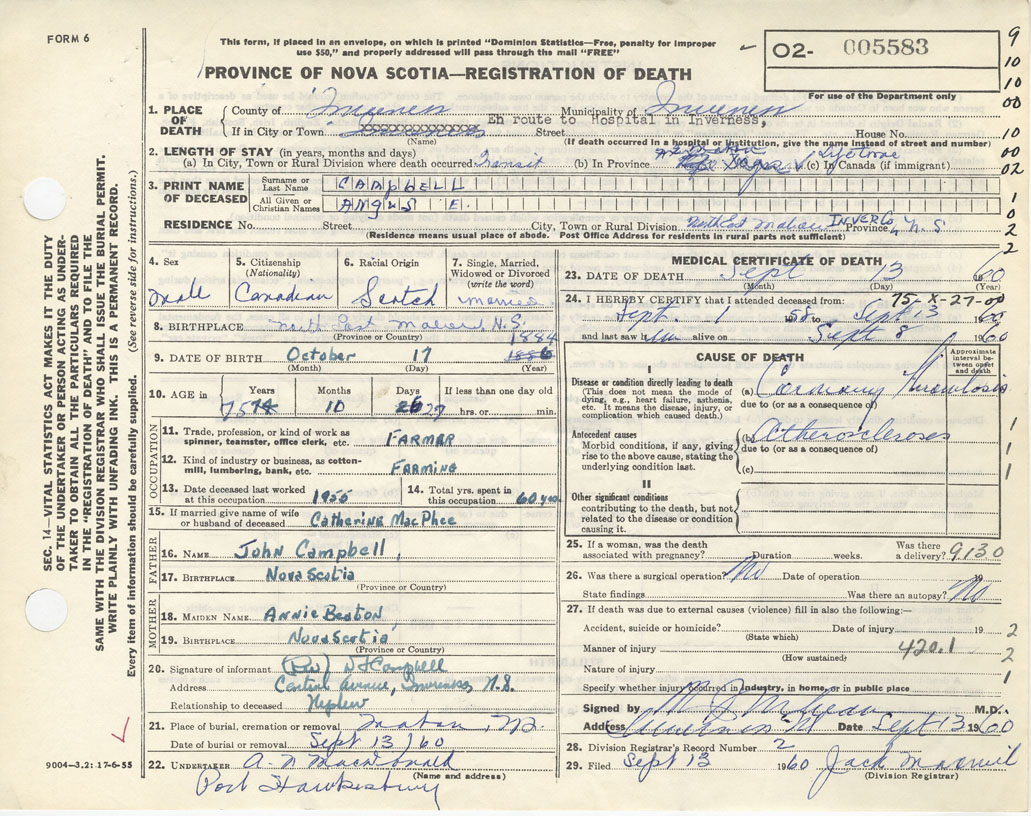 FORM 6
This form, if placed in an envelope, on which is printed "Dominion Statistics—Free, penalty for improper
use $50," and properly addressed will pass through the mail "FREE"
PROVINCE OF NOVA SCOTIA—REGISTRATION OF DEATH
02- 005583
For use of the Department only
9
10
10
00
10
00
02
1
0
2
2
1. PLACE OF DEATH
County of Inverness Municipality of Inverness
If in City or Town Street En route to Hospital in Inverness, House No.
(Name) (If death occurred in a hospital or institution, give the name instead of street and number)
2. LENGTH OF STAY (in years, months and days)
(a) In City, Town or Rural Division where death occurred Transit (b) In Province Lifetime (c) In Canada (if immigrant)
3. PRINT NAME OF DECEASED
Surname or Last Name CAMPBELL
All Given or Christian Names ANGUS E.
RESIDENCE No. Street City, Town or Rural Division North East Mabou INVER Co Province N.S
(Residence means usual place of abode. Post Office Address for residents in rural parts not sufficient)
4. Sex Male
5. Citizenship (Nationality) Canadian
6. Racial Origin Scotch
7. Single, Married, Widowed or Divorced (write the word) Married
8. BIRTHPLACE North East Mabou N.S.
(Province or Country)
9. DATE OF BIRTH October 17 1884
(Month) (Day) (Year)
10. AGE in Years 75 Months 10 Days 27 If less than one day old hrs. or min.
OCCUPATION
11. Trade, profession, or kind of work as spinner, teamster, office clerk, etc. FARMER
12. Kind of industry or business, as cotton-mill, lumbering, bank, etc. FARMING
13. Date deceased last worked at this occupation 1955
14. Total yrs. spent in this occupation 60 yrs.
15. If married give name of wife or husband of deceased Catherine MacPhee
FATHER
16. NAME John Campbell,
17. BIRTHPLACE Nova Scotia
(Province or Country)
MOTHER
18. MAIDEN NAME Annie Beaton
19. BIRTHPLACE Nova Scotia
(Province or Country)
20. Signature of informant (Rev) Campbell
Address Central Avenue, Inverness, N.S.
Relationship to deceased Nephew
21. Place of burial, cremation or removal Mabou, N.S.
Date of burial or removal Sept 13/60
22. UNDERTAKER A. N MacDonald
(Name and address)
Port Hawkesbury
MEDICAL CERTIFICATE OF DEATH
23. DATE OF DEATH Sept 13 1960
(Month) (Day) (Year)
24. I HEREBY CERTIFY that I attended deceased from: 75-X-27-00
Sept. 1 1958 to Sept 13 1960
and last saw him alive on Sept 8 1960
CAUSE OF DEATH
Approximate interval between onset and death
I
Disease or condition directly leading to death
(This does not mean the mode of dying, e.g., heart failure, asthenia, etc. It means the disease, injury, or complication which caused death.)
(a) Coronary Thrombosis
due to (or as a consequence of)
Antecedent causes
Morbid conditions, if any, giving rise to the above cause, stating the underlying condition last.
(b) Atherosclerosis
due to (or as a consequence of)
(c)
II
Other significant conditions
contributing to the death, but not related to the disease or condition causing it.
1
1
1
25. If a woman, was the death associated with pregnancy? Duration weeks. Was there a delivery? 9130
26. Was there a surgical operation? No Date of operation 19
State findings Was there an autopsy? No
27. If death was due to external causes (violence) fill in also the following:—
Accident, suicide or homicide? Date of injury 19 2
(State which)
Manner of injury 420.1 2
(How sustained)
Nature of injury 1
Specify whether injury occurred in industry, in home, or in public place
Signed by M.D.
Address Date Sept 13 1960
28. Division Registrar's Record Number 2
29. Filed Sept 13 1960 Jack
(Division Registrar)
SEC. 14—VITAL STATISTICS ACT MAKES IT THE DUTY
OF THE UNDERTAKER OR PERSON ACTING AS UNDER-
TAKER TO OBTAIN ALL THE PARTICULARS REQUIRED
IN THE "REGISTRATION OF DEATH" AND TO FILE THE
SAME WITH THE DIVISION REGISTRAR WHO SHALL ISSUE THE BURIAL PERMIT.
WRITE PLAINLY WITH UNFADING INK. THIS IS A PERMANENT RECORD.
Every item of information should be carefully supplied. (See reverse side for instructions.)
9004—3.2: 17-6-55